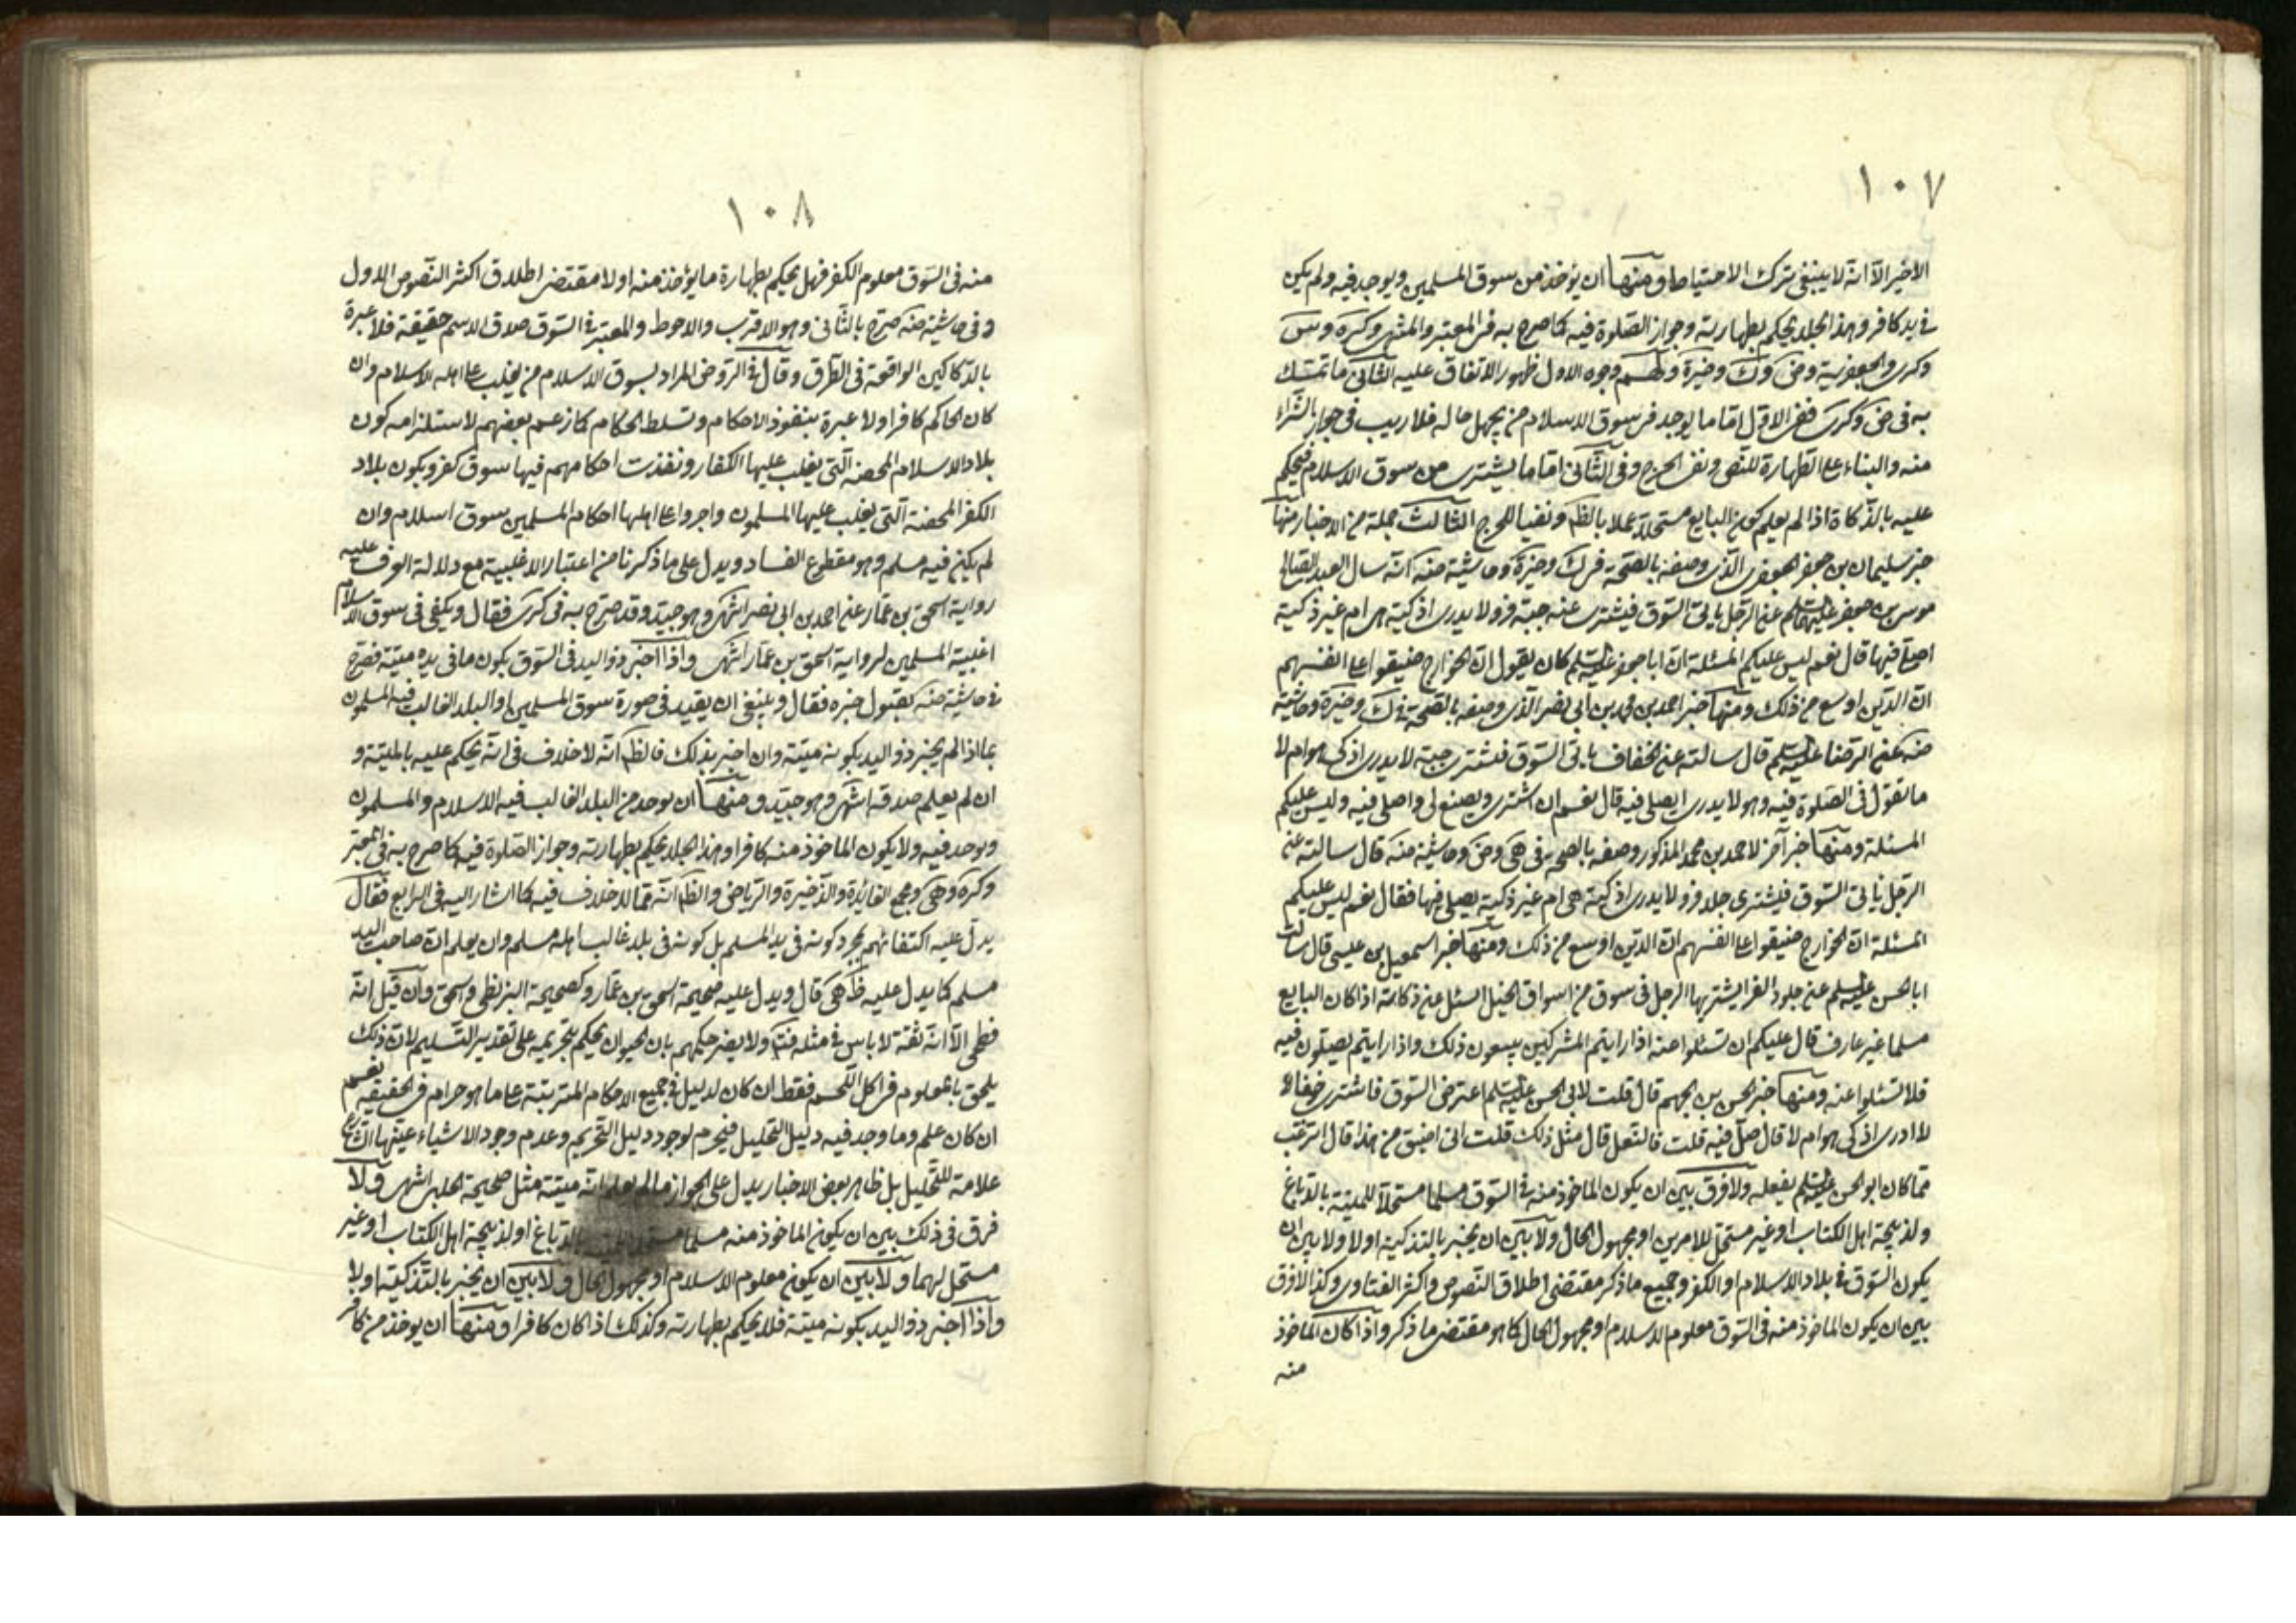 ١٠٧
الاخير الا انه لا ينبغى ترك الاحتياط و منها ان يؤخذ من سوق المسلمين و يوجد فيه ولم يكن
فى يد كافر و هذا الجلد يحكم بطهارته وجواز الصلوة فيه كما صرح به فى المعتبر والمنتهى وكره و س
وكرى والجعفرية وض وك وخيرة وجوه الاول ظهور الاتفاق عليه الثانى ما تمسك
به فى ض وكرى ففى الاول اما ما يوجد فى سوق الاسلام من يجهل حاله فلا ريب فى جواز الشراء
منه والبناء على الطهارة للنص ونفى الحرج وفى الثانى اما ما يشترى من سوق الاسلام فيحكم
عليه بالذكاة اذا لم يعلم كون البايع مستحلا عملا بالظ ونفيا للحرج الثالث جملة من الاخبار منها
خبر سليمان بن جعفر الجعفرى الذى وصفه بالصحة فى ك وخيرة وحاشية منه انه سال العبد الصالح
موسى بن جعفر عليهما السلم عن الرجل ياتى السوق فيشترى عنه جبة فرو لا يدرى اذكية هى ام غير ذكية
اصلى فيها قال نعم ليس عليكم المسئلة ان ابا جعفر عليه السلم كان يقول ان الخوارج ضيقوا على انفسهم
ان الدين اوسع من ذلك ومنها خبر احمد بن محمد بن ابى نصر الذى وصفه بالصحة فى ك وخيرة وحاشية
منه عن الرضا عليه السلم قال سالته عن الخفاف ياتى السوق فيشترى جبة لا يدرى اذكى هو ام لا
ما تقول فى الصلوة فيه وهو لا يدرى ايصلى فيه قال نعم ان اشترى ويصنع لى واصلى فيه وليس عليكم
المسئلة ومنها خبر آخر لاحمد بن محمد المذكور وصفه بالصحة فى هى وض وحاشية منه قال سالته عن
الرجل ياتى السوق فيشترى جلد فرو لا يدرى اذكية هى ام غير ذكية يصلى فيها فقال نعم ليس عليكم
المسئلة ان الخوارج ضيقوا على انفسهم ان الدين اوسع من ذلك ومنها خبر اسمعيل بن عيسى قال سالت
ابا الحسن عليه السلم عن جلود الفرا يشتريها الرجل فى سوق من اسواق الجبل ايسئل عن ذكاته اذا كان البايع
مسلما غير عارف قال عليكم ان تسئلوا عنه اذا رايتم المشركين يبيعون ذلك واذا رايتم يصلون فيه
فلا تسئلوا عنه ومنها خبر الحسن بن الجهم قال قلت لابى الحسن عليه السلم اعترض السوق فاشترى خفا
لا ادرى اذكى هو ام لا قال صل فيه قلت فالنعل قال مثل ذلك قلت انى اضيق من هذا قال اترغب
عما كان ابو الحسن عليه السلم يفعله ولا فرق بين ان يكون الماخوذ منه فى السوق مسلما مستحلا للميتة بالدباغ
ولذبيحة اهل الكتاب او غير مستحل للامرين او مجهول الحال ولا بين ان يخبر بالتذكية او لا ولا بين ان
يكون السوق فى بلاد الاسلام او الكفر وجميع ما ذكر مقتضى اطلاق النصوص واكثر الفتاوى وكذا لا فرق
بين ان يكون الماخوذ منه فى السوق معلوم الاسلام او مجهول الحال كما هو مقتضى ما ذكر واذا كان الماخوذ
منه
١٠٨
منه فى السوق معلوم الكفر فهل يحكم بطهارة ما يؤخذ منه او لا مقتضى اطلاق اكثر النصوص الاول
وفى حاشية منه صرح بالثانى وهو الاقرب والاحوط والمعتبر فى السوق صدق الاسم حقيقة فلا عبرة
بالدكاكين الواقعة فى الطرق وقال فى الروض المراد بسوق الاسلام من يغلب على اهله الاسلام وان
كان الحاكم كافرا ولا عبرة بنفوذ الاحكام وتسلط الحكام كما زعم بعضهم لاستلزامه كون
بلاد الاسلام المحضة التى يغلب عليها الكفار ونفذت احكامهم فيها سوق كفر وبكون بلاد
الكفر المحضة التى يغلب عليها المسلمون واجروا على اهلها احكام المسلمين سوق اسلام وان
لم يكن فيه مسلم وهو مقطوع الفساد ويدل على ما ذكرنا من اعتبار الاغلبية مع دلالة العرف عليه
رواية اسحق بن عمار عن احمد بن ابى نصر انتهى وهو جيد وقد صرح به فى كرى فقال ويكفى فى سوق الاسلام
اغلبية المسلمين لرواية اسحق بن عمار انتهى واذا اخبر ذو اليد فى السوق بكون ما فى يده ميتة فصرح
فى حاشية منه بقبول خبره فقال وينبغى ان يقيد فى صورة سوق المسلمين او البلد الغالب فيه المسلمون
بما اذا لم يخبر ذو اليد بكونه ميتة وان اخبر بذلك فالظ انه لا خلاف فى انه يحكم عليه بالميتة و
ان لم يعلم صدقه انتهى وهو جيد ومنها ان يوجد من البلد الغالب فيه الاسلام والمسلمون
ويوجد فيه ولا يكون الماخوذ منه كافرا وهذا الجلد يحكم بطهارته وجواز الصلوة فيه كما صرح به فى المعتبر
وكره وهى ومجمع الفائدة والذخيرة والرياض والظ انه مما لا خلاف فيه كما اشار اليه فى الرابع فقال
يدل عليه اكتفائهم بمجرد كونه فى يد المسلم بل كونه فى بلد غالب اهله مسلم وان يعلم ان صاحب اليد
مسلم كما يدل عليه ظ هى قال ويدل عليه صحيحة اسحق بن عمار وكصحيحة البزنطى واسحق وان قيل انه
فطحى الا انه ثقة لا باس فى مثله فت ولا يضر حكمهم بان الحيوان يحكم بتحريمه على تقدير التسليم لان ذلك
يلحق بالمعلوم فى اكل اللحم فقط ان كان لدليل فى جميع الاحكام المترتبة على ما هو حرام فى الحقيقة نعم
ان كان علم وما وجد فيه دليل التحليل فيحرم لوجود دليل التحريم وعدم وجود الاشياء عينها الشارع
علامة للتحليل بل ظاهر بعض الاخبار يدل على الجواز ما لم يعلم انه ميتة مثل صحيحة الحلبى انتهى ولا
فرق فى ذلك بين ان يكون الماخوذ منه مسلما مستحل للميتة بالدباغ او لذبيحة اهل الكتاب او غير
مستحل لهما ولا بين ان يكون معلوم الاسلام او مجهول الحال ولا بين ان يخبر بالتذكية او لا
واذا اخبر ذو اليد بكونه ميتة فلا يحكم بطهارته وكذلك اذا كان كافرا ومنها ان يوخذ من كافر